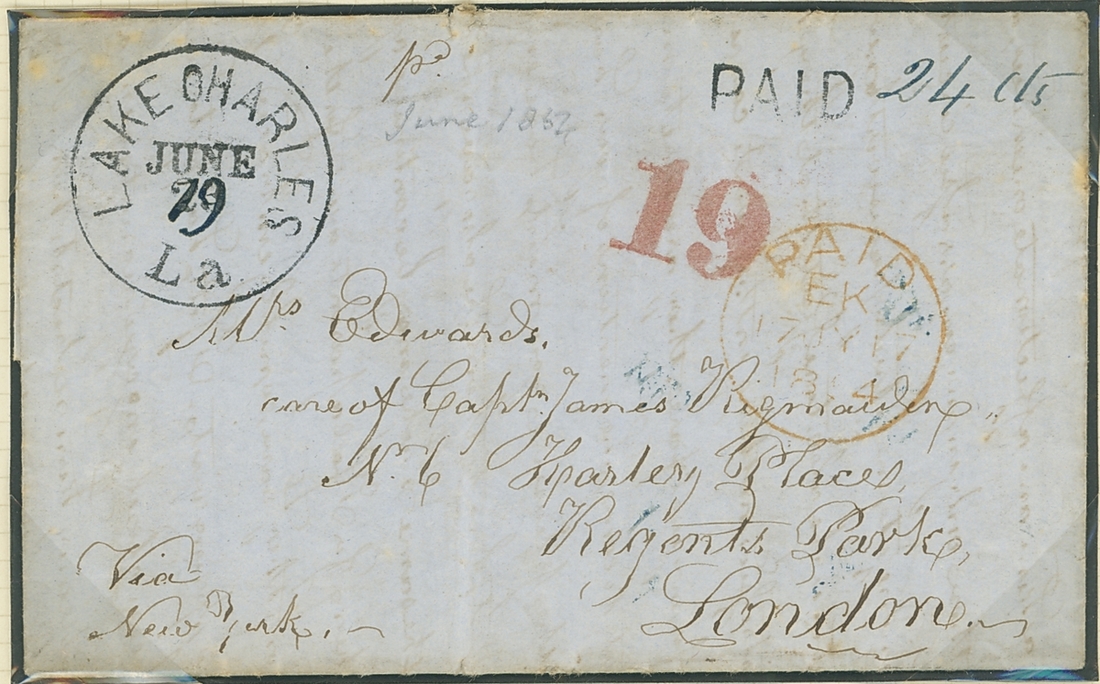 LAKE CHARLES
JUNE
19
La
pd
June 1862
PAID 24 cts
19
PAID
EK
Mrs Edwards,
care of Captn James Rigmaiden,
No 6 Harley Places,
Regents Park,
London.
Via
New York.